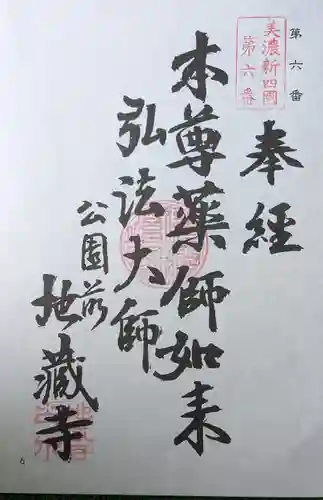 第六番
美濃新四國
第六番
奉經
本尊薬師如来
弘法大師
公園前
地藏寺